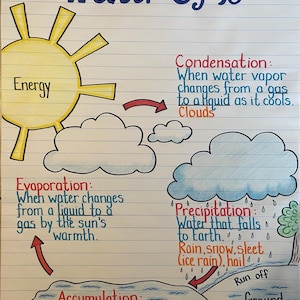 Water Cycle
Condensation:
When water vapor
changes from a gas
to a liquid as it cools.
Clouds
Energy
Evaporation:
When water changes
from a liquid to a
gas by the sun's
warmth.
Precipitation:
Water that falls
to Earth.
Rain, snow, sleet
(ice rain), hail
Run off
Accumulation:
Ground